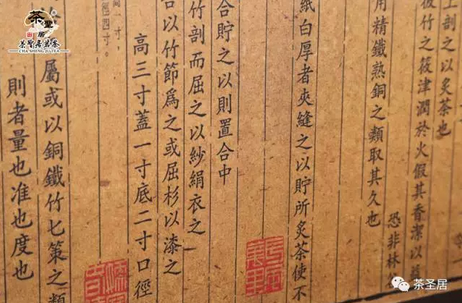 上剖之以炙茶也
彼竹之筱津潤於火假其香潔以
恐非林
用精鐵熟銅之類取其久也
紙白厚者夾縫之以貯所炙茶使不
合貯之以則置合中
竹剖而屈之以紗絹衣之
合以竹節爲之或屈杉以漆之
高三寸蓋一寸底二寸口徑
高一寸
屬或以銅鐵竹匕策之類
則者量也准也度也
茶圣居
茶圣居